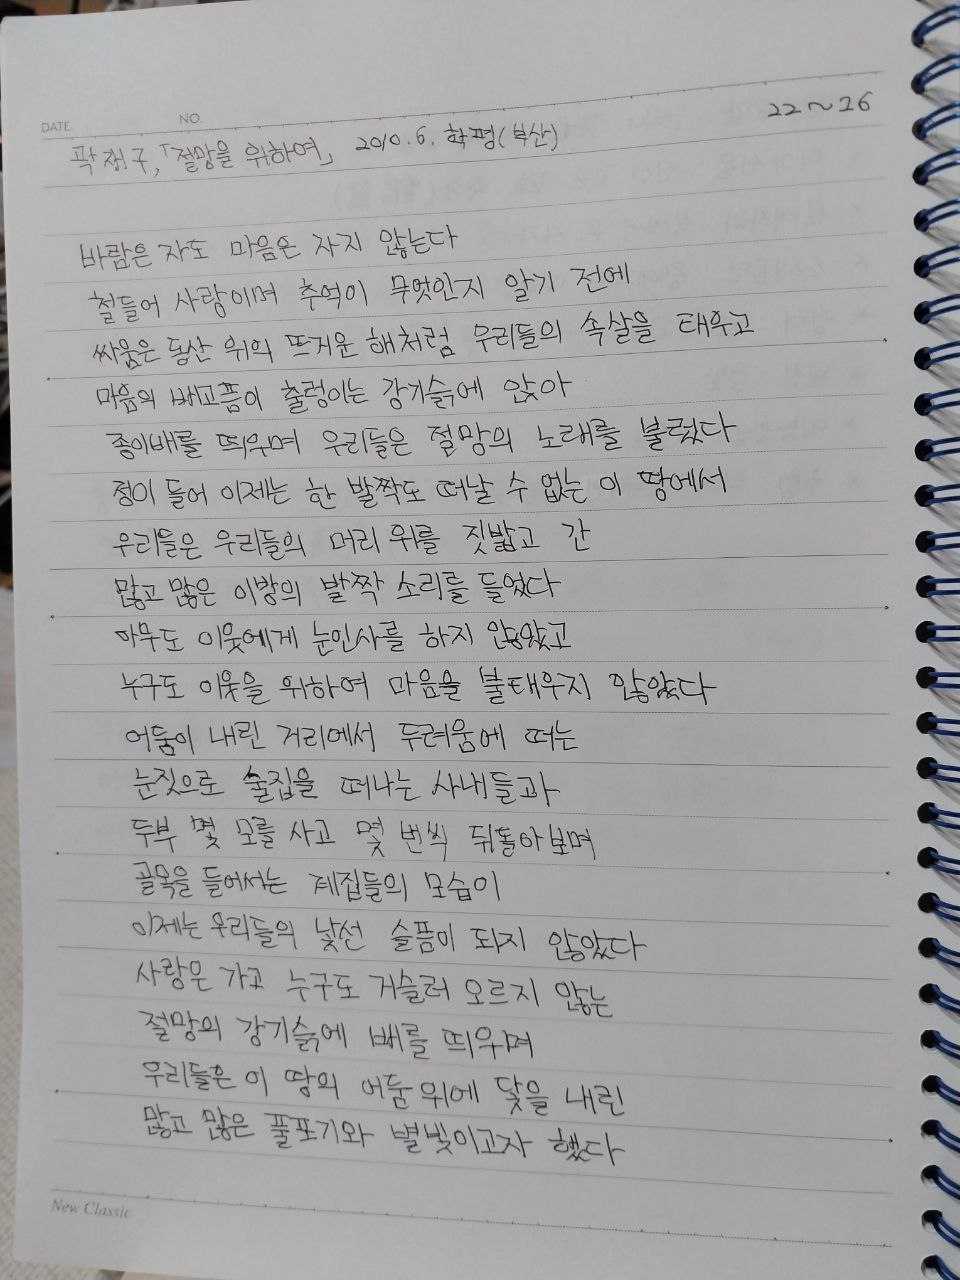 DATE NO. 22~26
곽재구, 「절망을 위하여」 2010.6. 학평(부산)
바람은 자도 마음은 자지 않는다
철들어 사랑이며 추억이 무엇인지 알기 전에
싸움은 동산 위의 뜨거운 해처럼 우리들의 속살을 태우고
마음의 배고픔이 출렁이는 강기슭에 앉아
종이배를 띄우며 우리들은 절망의 노래를 불렀다
정이 들어 이제는 한 발짝도 떠날 수 없는 이 땅에서
우리들은 우리들의 머리 위를 짓밟고 간
많고 많은 이방의 발짝 소리를 들었다
아무도 이웃에게 눈인사를 하지 않았고
누구도 이웃을 위하여 마음을 불태우지 않았다
어둠이 내린 거리에서 두려움에 떠는
눈짓으로 술집을 떠나는 사내들과
두부 몇 모를 사고 몇 번씩 뒤돌아보며
골목을 들어서는 계집들의 모습이
이제는 우리들의 낯선 슬픔이 되지 않았다
사랑은 가고 누구도 거슬러 오르지 않는
절망의 강기슭에 배를 띄우며
우리들은 이 땅의 어둠 위에 닻을 내린
많고 많은 풀포기와 별빛이고자 했다
New Classic